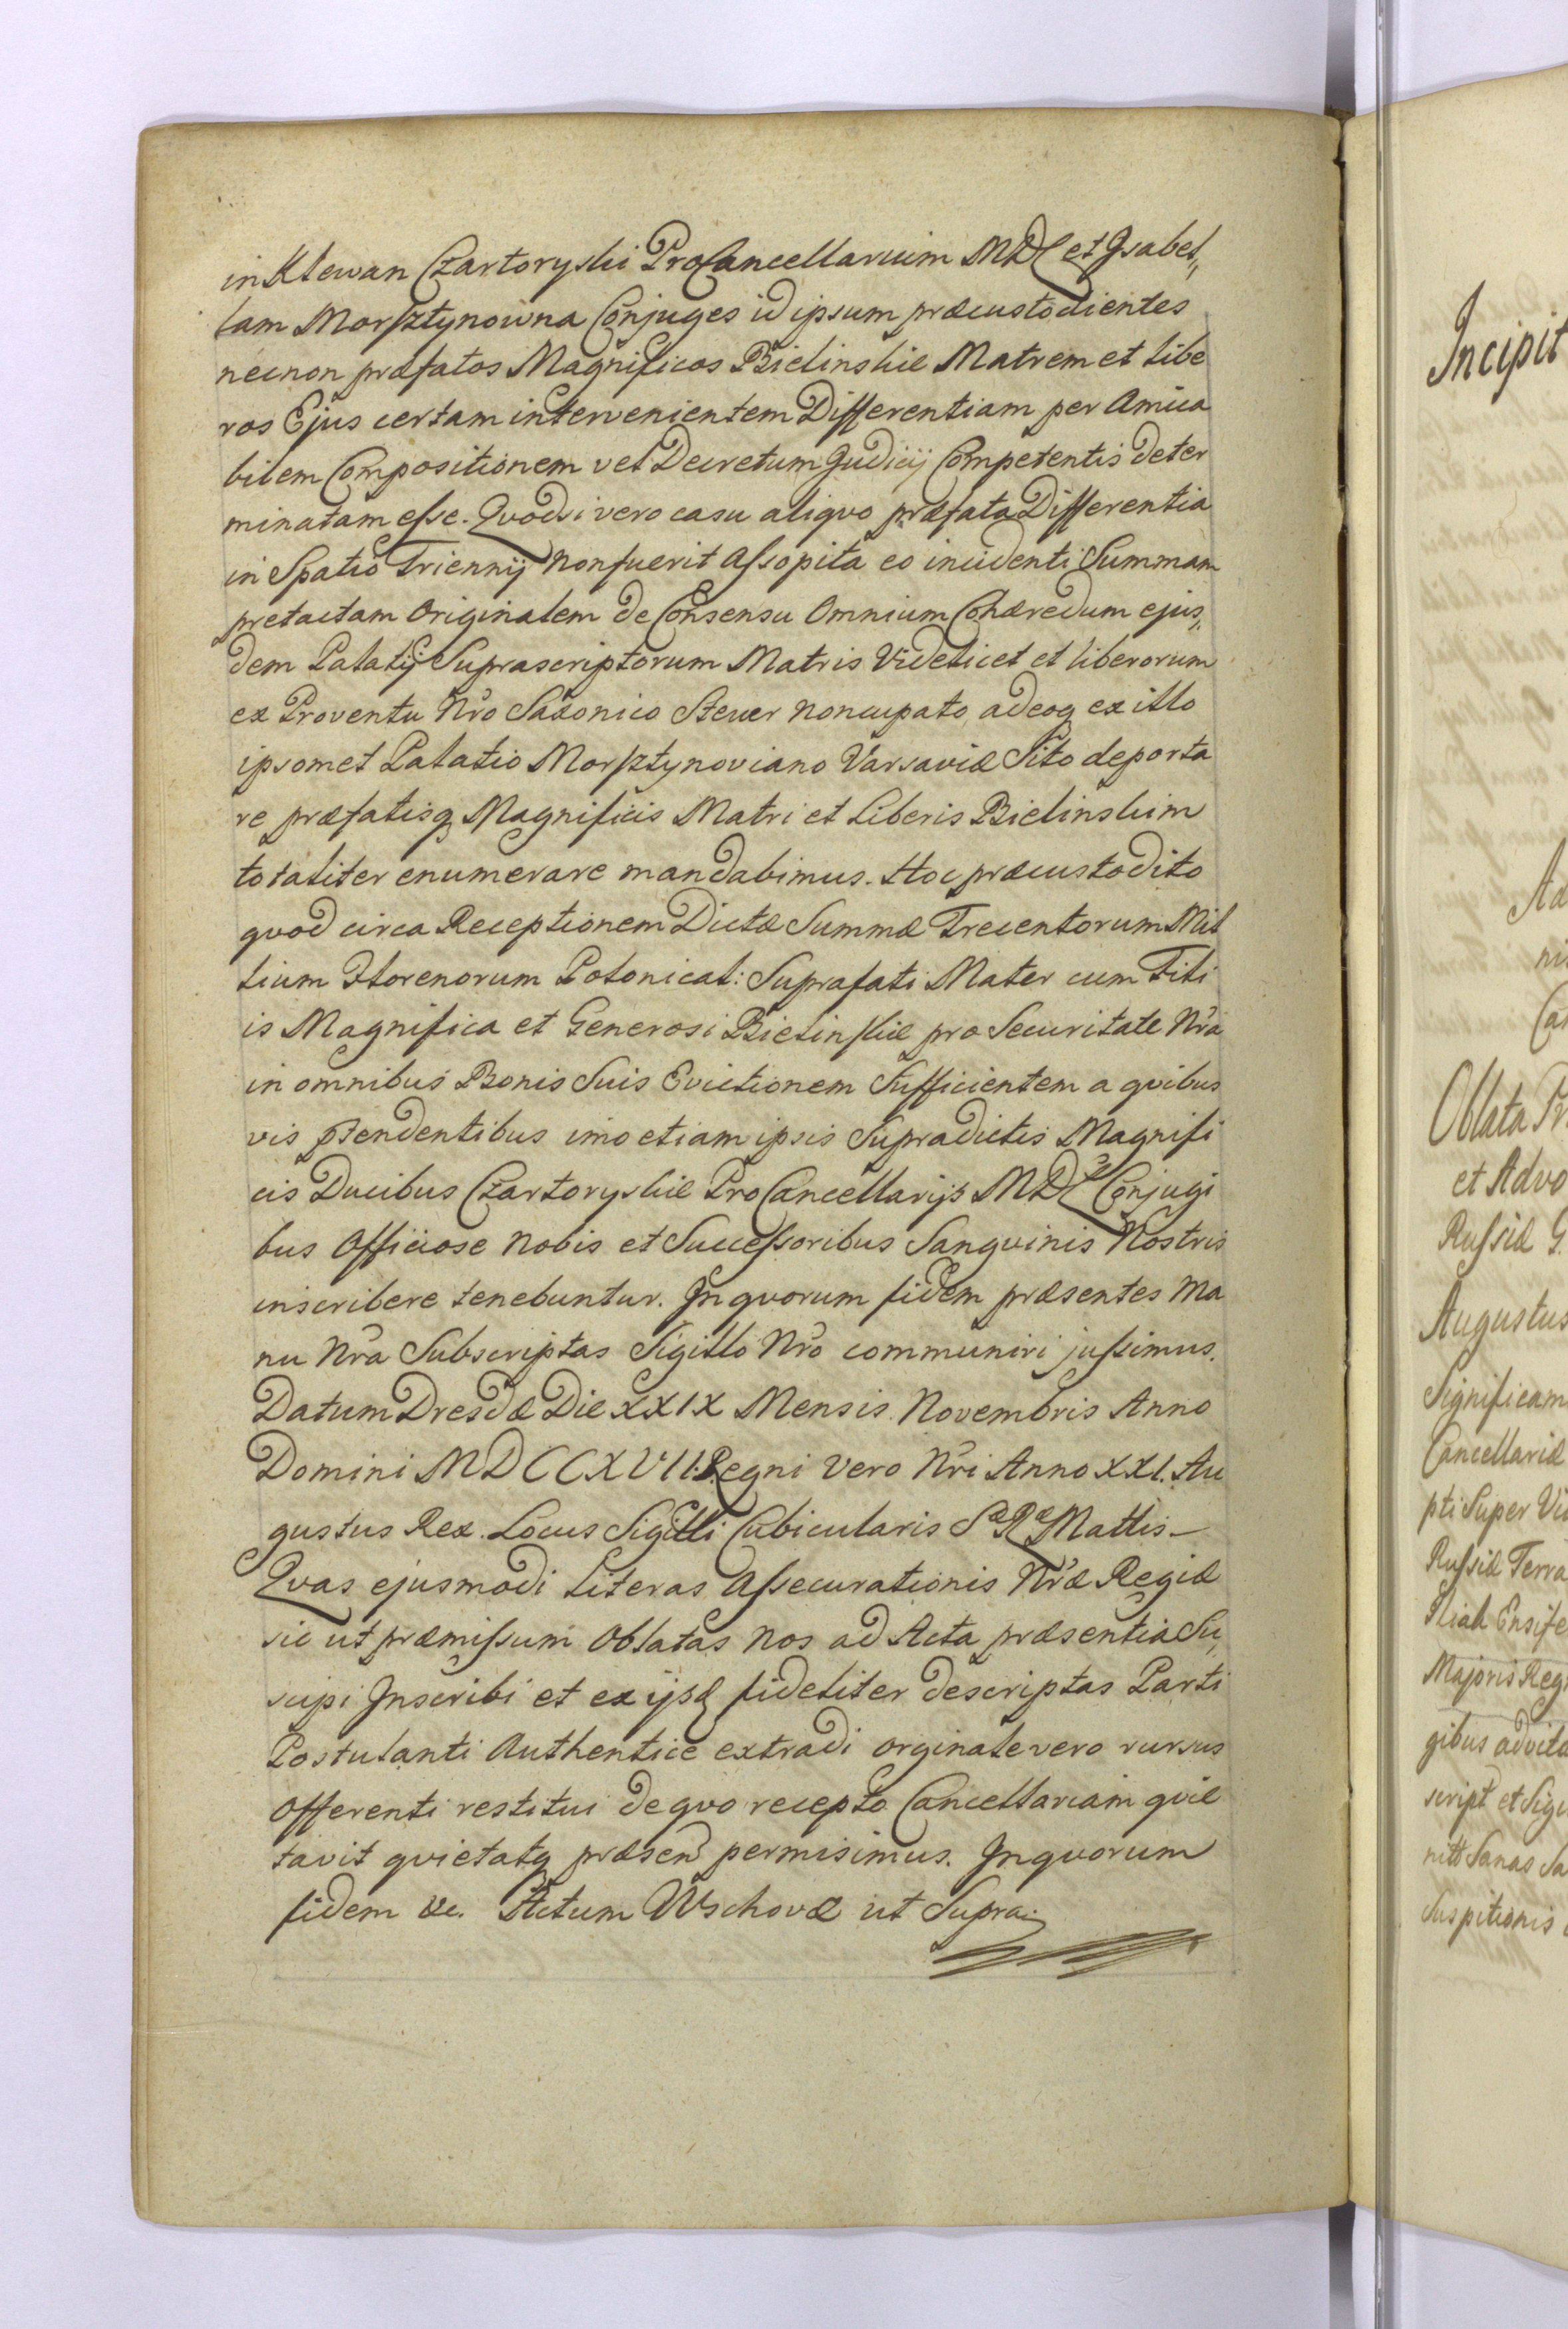 in Klewan Czartoryski ProCancellarium MDL et Jsabel„
lam Morsztynowna Conjuges id ipsum præcustodientes
necnon præfatos Magnificos Bielinskie Matrem et libe
ros Ejus certam intervenientem Differentiam per Amica
bilem Compositionem vel Decretum Judicij Competentis deter
minatam esse. Qvodsi vero casu aliqvo præfata Differentia
in Spatio Triennij non fuerit Assopita eo incidenti Summam
pretactam Originalem de Consensu Omnium Cohæredum ejus„
dem Palatij Suprascriptorum Matris Videlicet et liberorum
ex Proventu Nro Saxonico Steuer noncupato, adeoq ex illo
ipsomet Palatio Morsztynoviano Varsaviæ Sito deporta
re præfatisq Magnificis Matri et Liberis Bielinskim
totaliter enumerare mandabimus. Hoc præcustodito
qvod circa Receptionem Dictæ Summæ Trecentorum Mil
lium Florenorum Polonical: Suprafati Mater cum Fili
is Magnifica et Generosi Bielinskie pro Securitate Nra
in omnibus Bonis Suis Evictionem Sufficientem a qvibus
vis pendentibus imo etiam ipsis Supradictis Magnifi
cis Ducibus Czartoryskie ProCancellarijs MDL Conjugi
bus Officiose Nobis et Successoribus Sangvinis Nostris
inscribere tenebuntur. Jn qvorum fidem præsentes Ma
nu Nra Subscriptas Sigillo Nro communiri jussimus.
Datum Dresdæ Die XXIX Mensis Novembris Anno
Domini MDCCXVII. Regni Vero Nri Anno XXI. Au
gustus Rex. Locus Sigilli Cubicularis Sæ Ræ Mattis –
Qvas ejusmodi Literas Assecurationis Nræ Regiæ
sic ut præmissum Oblatas Nos ad Acta præsentia Su„
scipi Jnscribi et ex ijsd fideliter descriptas Parti
Postulanti Authentice extradi orginale vero rursus
Offerenti restitui de qvo recepto Cancellariam qvie
tavit qvietatq præsen permisimus. Jn qvorum
fidem &c. Actum Wschovæ ut Supra.
Incipit
Oblata
et Advo
Russiæ G.
Augustus
Significam
Cancellariæ
pti Super
Russiæ Terra
Ensife
Majoris Reg
gibus advita
script et Sig
Suspitionis